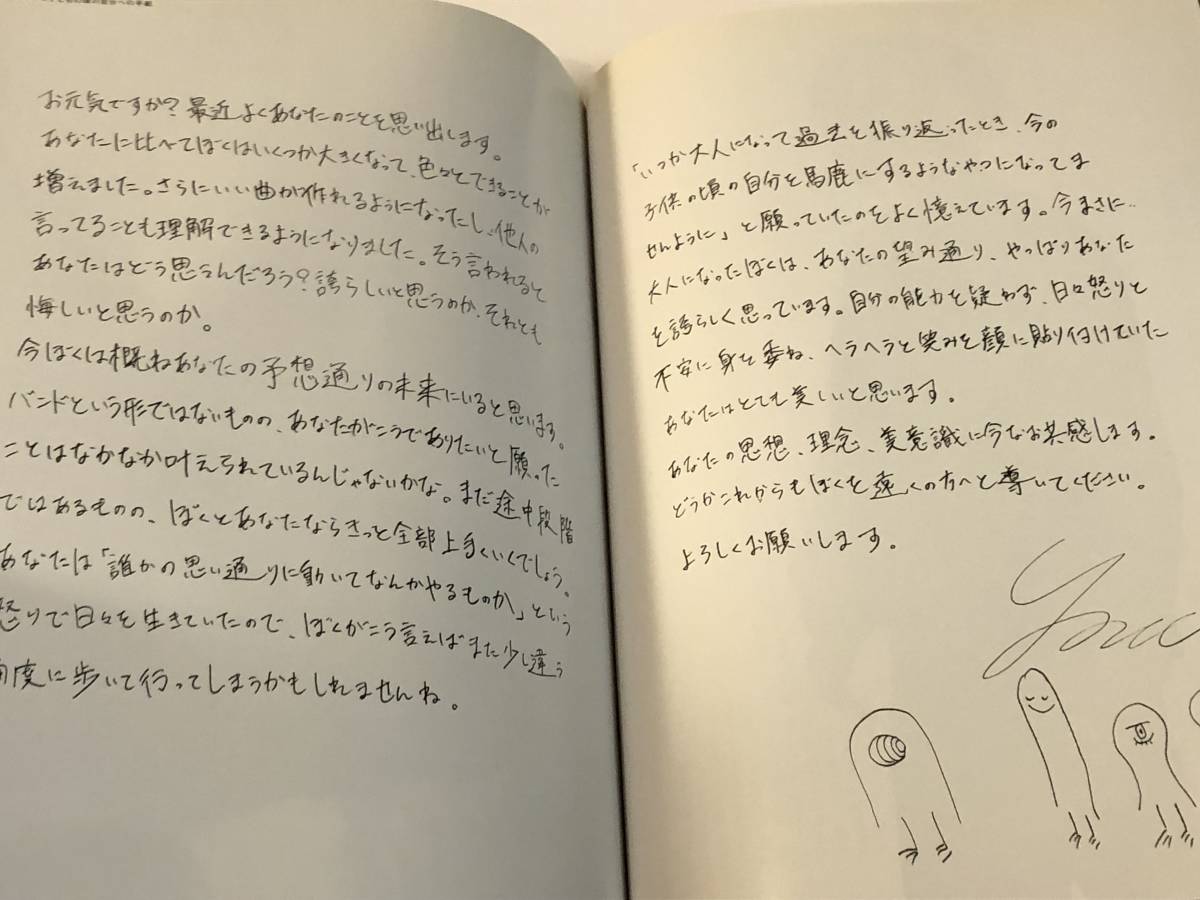 の頃の自分への手紙
お元気ですか?最近よくあなたのことを思い出します。
あなたに比べてぼくはいくつか大きくなって、色々とできることが
増えました。さらにいい曲が作れるようになったし、他人の
言ってることも理解できるようになりました。そう言われると
あなたはどう思うんだろう?誇らしいと思うのか、それとも
悔しいと思うのか。
今ぼくは概ねあなたの予想通りの未来にいると思います。
バンドという形ではないものの、あなたがこうでありたいと願った
ことはなかなか叶えられているんじゃないかな。まだ途中段階
ではあるものの、ぼくとあなたならきっと全部上手くいくでしょう。
あなたは「誰かの思い通りに動いてなんかやるものか」という
怒りで日々を生きていたので、ぼくがこう言えばまた少し違う
角度に歩いて行ってしまうかもしれませんね。
「いつか大人になって過去を振り返ったとき、今の
子供の頃の自分を馬鹿にするようなやつになってま
せんように」と願っていたのをよく憶えています。今まさに
大人になったぼくは、あなたの望み通り、やっぱりあなた
を誇らしく思っています。自分の能力を疑わず、日々怒りと
不安に身を委ね、ヘラヘラと笑みを顔に貼り付けていた
あなたはとても美しいと思います。
あなたの思想、理念、美意識に今なお共感します。
どうかこれからもぼくを遠くの方へと導いてください。
よろしくお願いします。